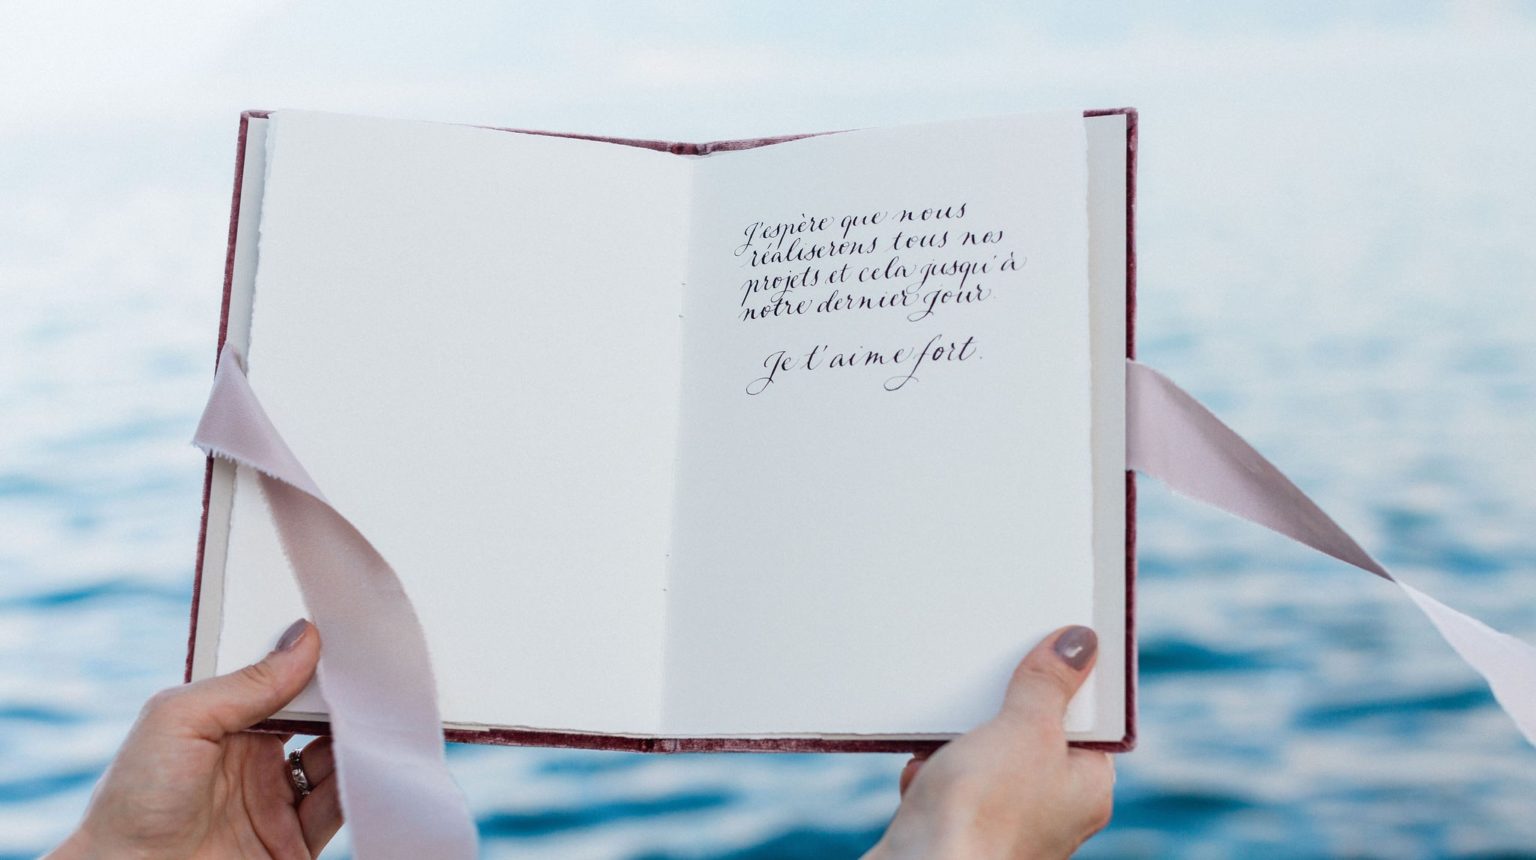 J'espère que nous
réaliserons tous nos
projets et cela jusqu'à
notre dernier jour.
Je t'aime fort.